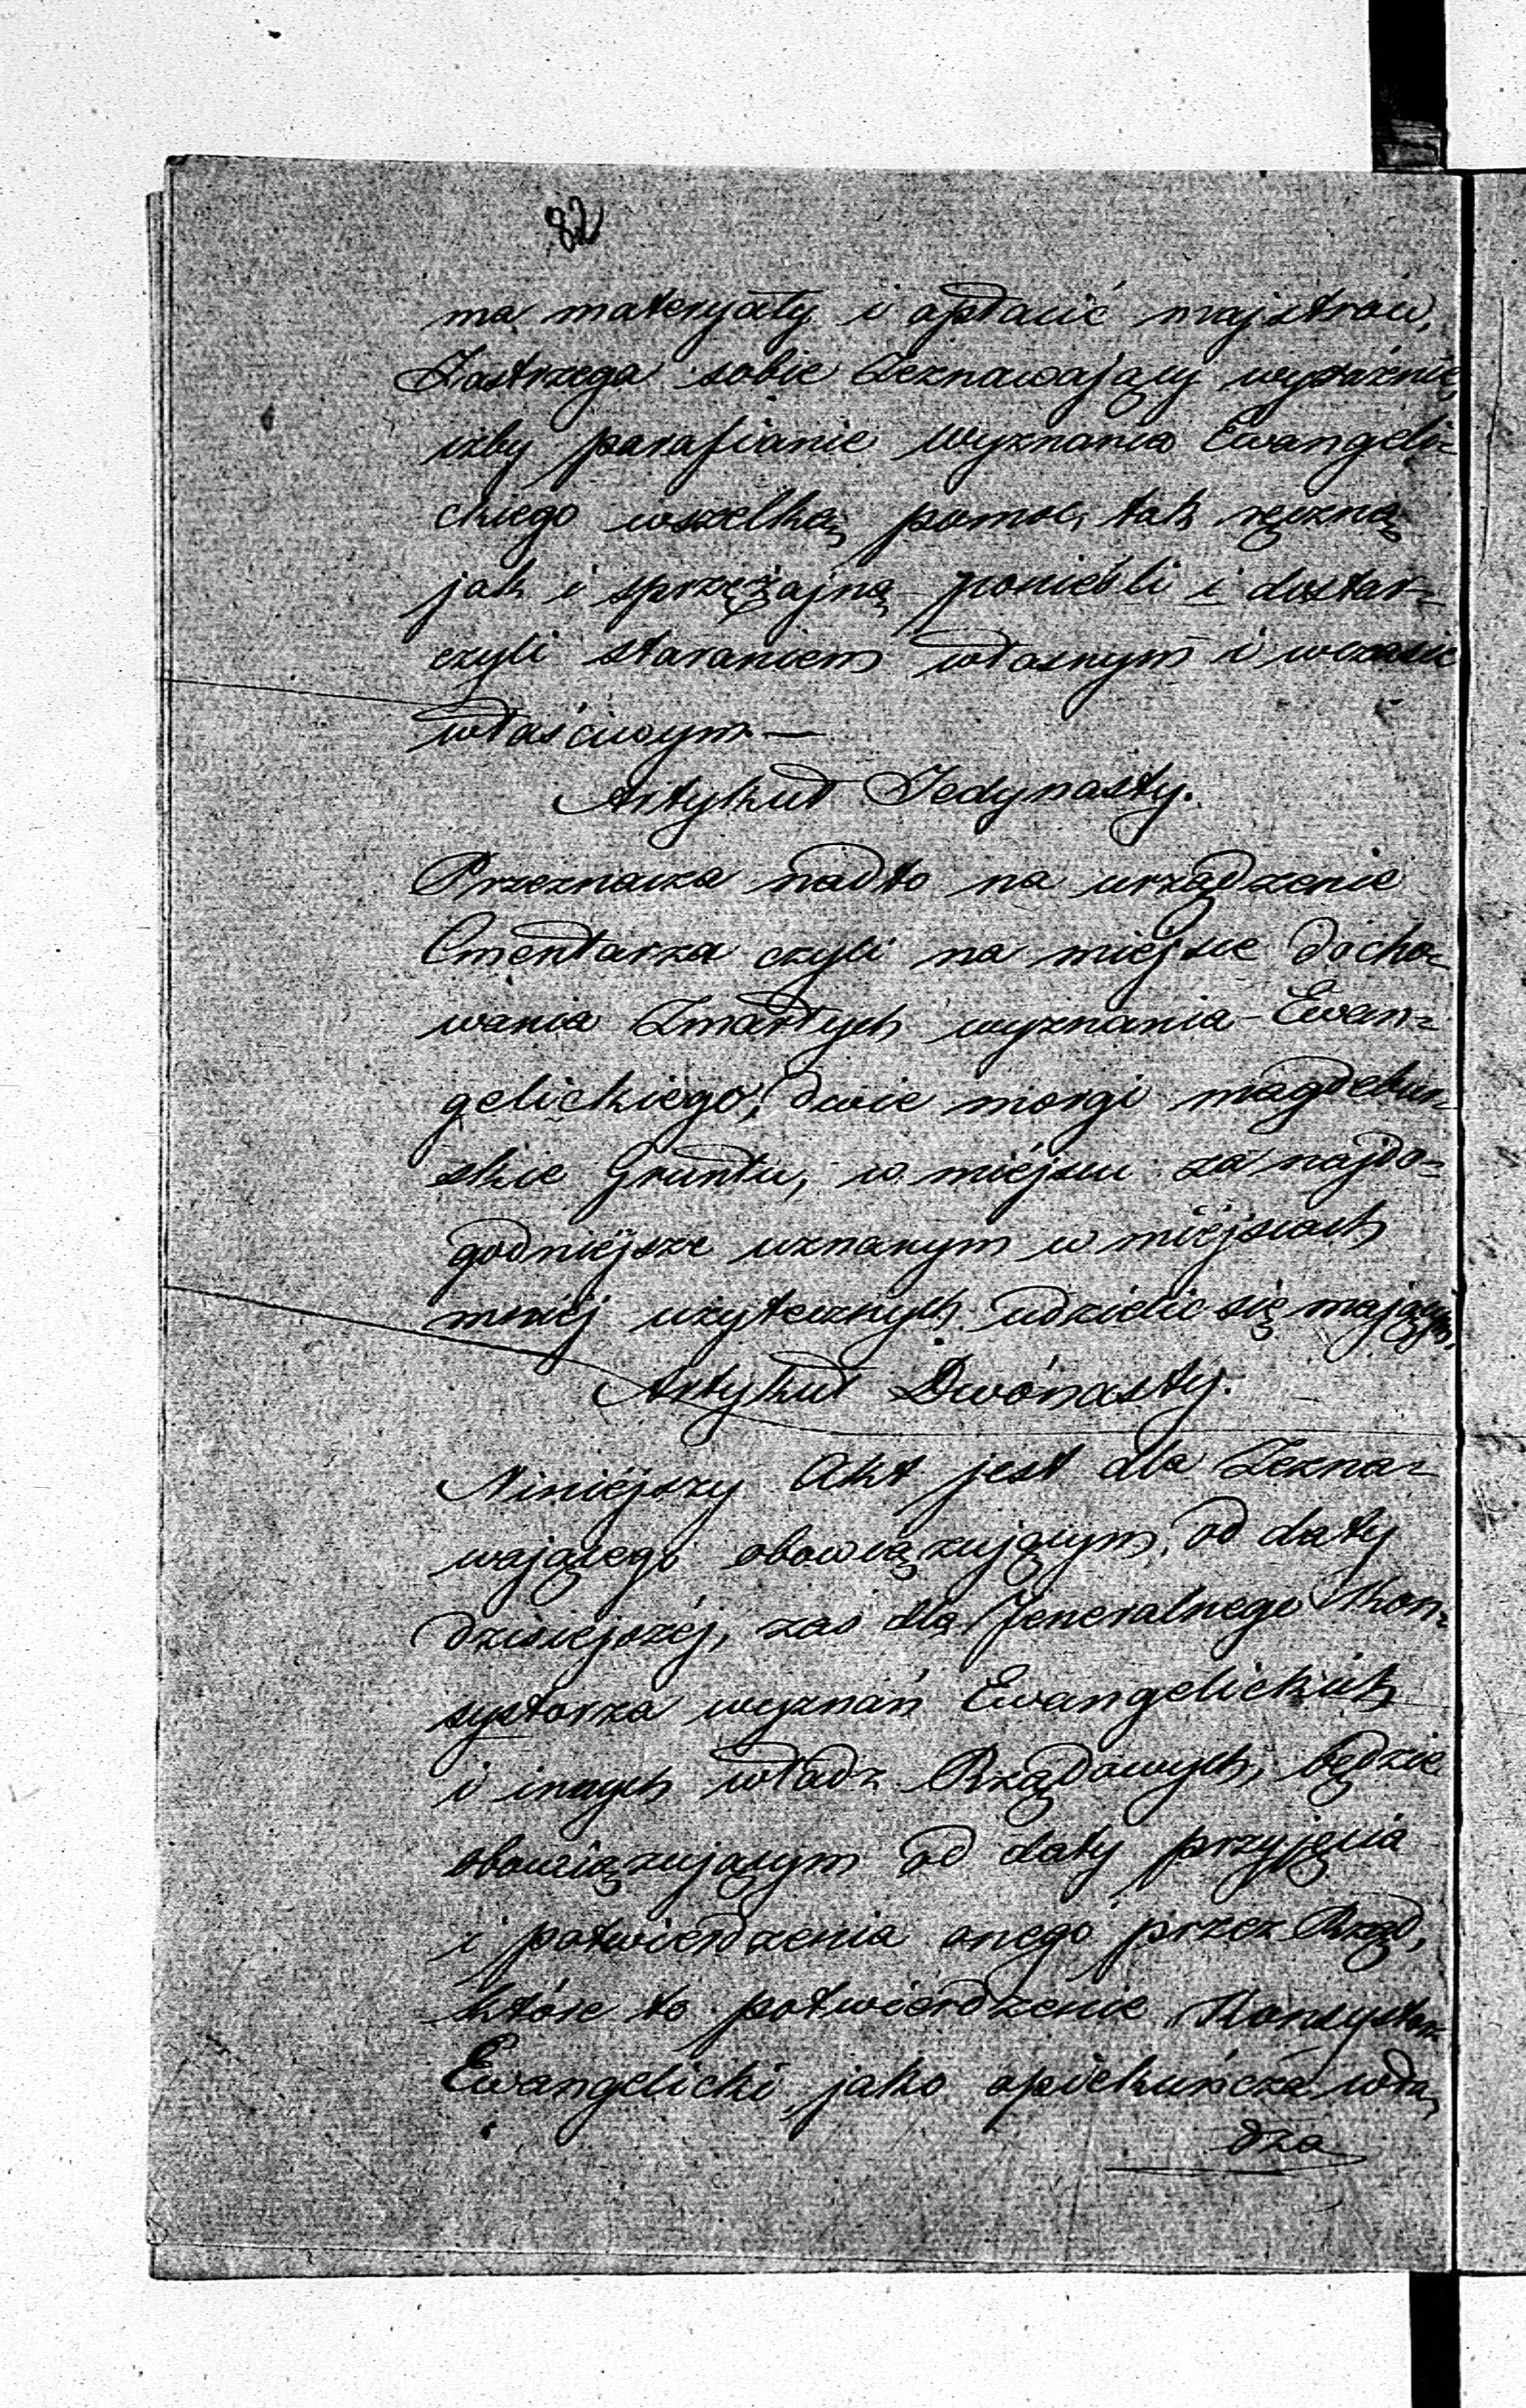 82
ma materyały i opłacić majstrów.
Zastrzega sobie Zeznawający wyraźnie
iżby parafianie wyznania Ewangeli-
ckiego wszelką pomoc, tak ręczną
jak i sprzężajną ponieśli i dostar-
czyli staraniem własnym i wczasie
właściwym —
Artykuł Jedynasty.
Przeznacza nadto na urządzenie
Cmentarza czyli na miejsce docho-
wania Zmarłych wyznania Ewan-
gelickiego, dwie morgi magdebur-
skie Gruntu, w miejscu za najdo-
godniejsze uznanym w miejscach
mniej użytecznych udzielić się mającym.
Artykuł Dwónasty.
Niniejszy Akt jest dla Zezna-
wającego obowiązującym, od daty
dzisiejszéj, zaś dla Jeneralnego Kon-
systorza wyznań Ewangelickich
i innych władz Rządowych, będzie
obowiązującym od daty przyjęcia
i potwierdzenia onego przez Rząd,
które to potwierdzenie Konsystorz
Ewangelicki jako opiekuńcza wła-
dza